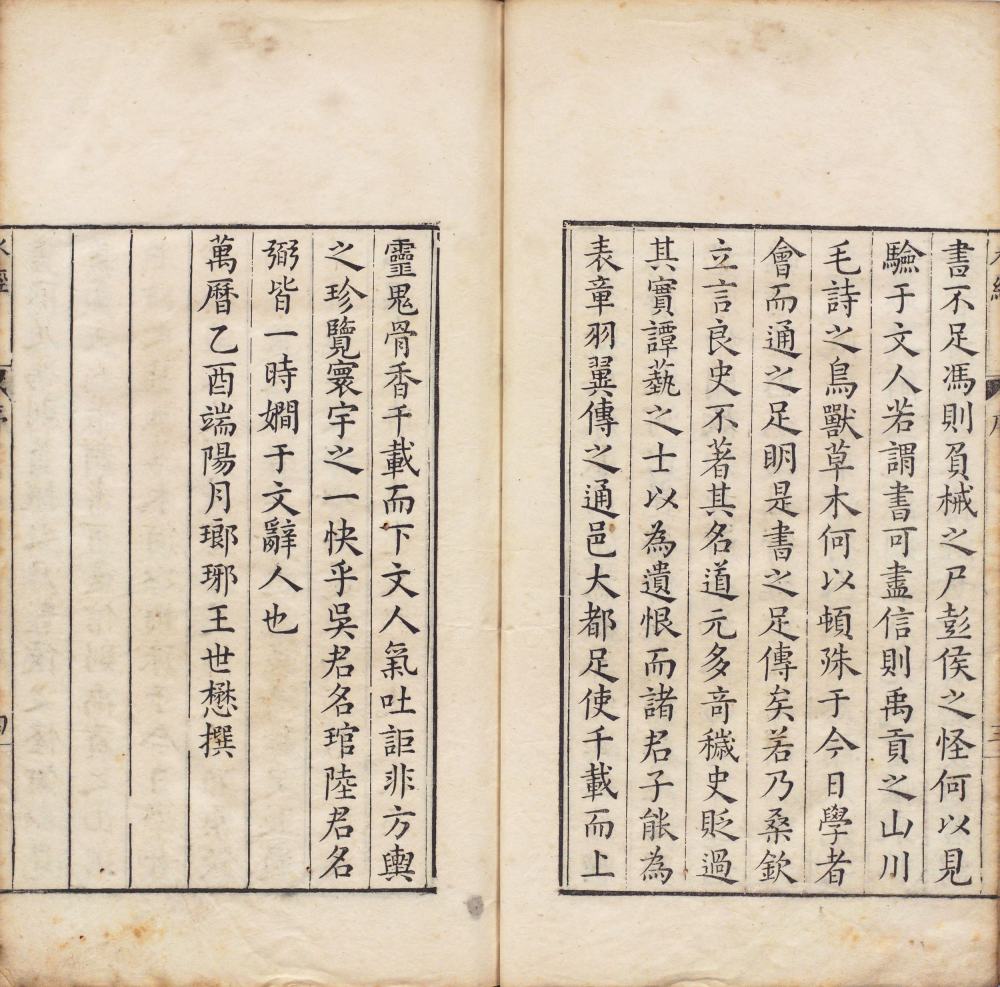 書不足馮則貟械之尸彭侯之怪何以見
驗于文人若謂書可盡信則禹貢之山川
毛詩之鳥獸草木何以頓殊于今日學者
會而通之足明是書之足傳矣若乃桑欽
立言良史不著其名道元多奇穢史貶過
其實譚藝之士以為遺恨而諸君子能為
表章羽翼傳之通邑大都足使千載而上
靈鬼骨香千載而下文人氣吐詎非方輿
之珍覽寰宇之一快乎吳君名琯陸君名
弼皆一時嫺于文辭人也
萬曆乙酉端陽月瑯琊王世懋撰
水經
序
四